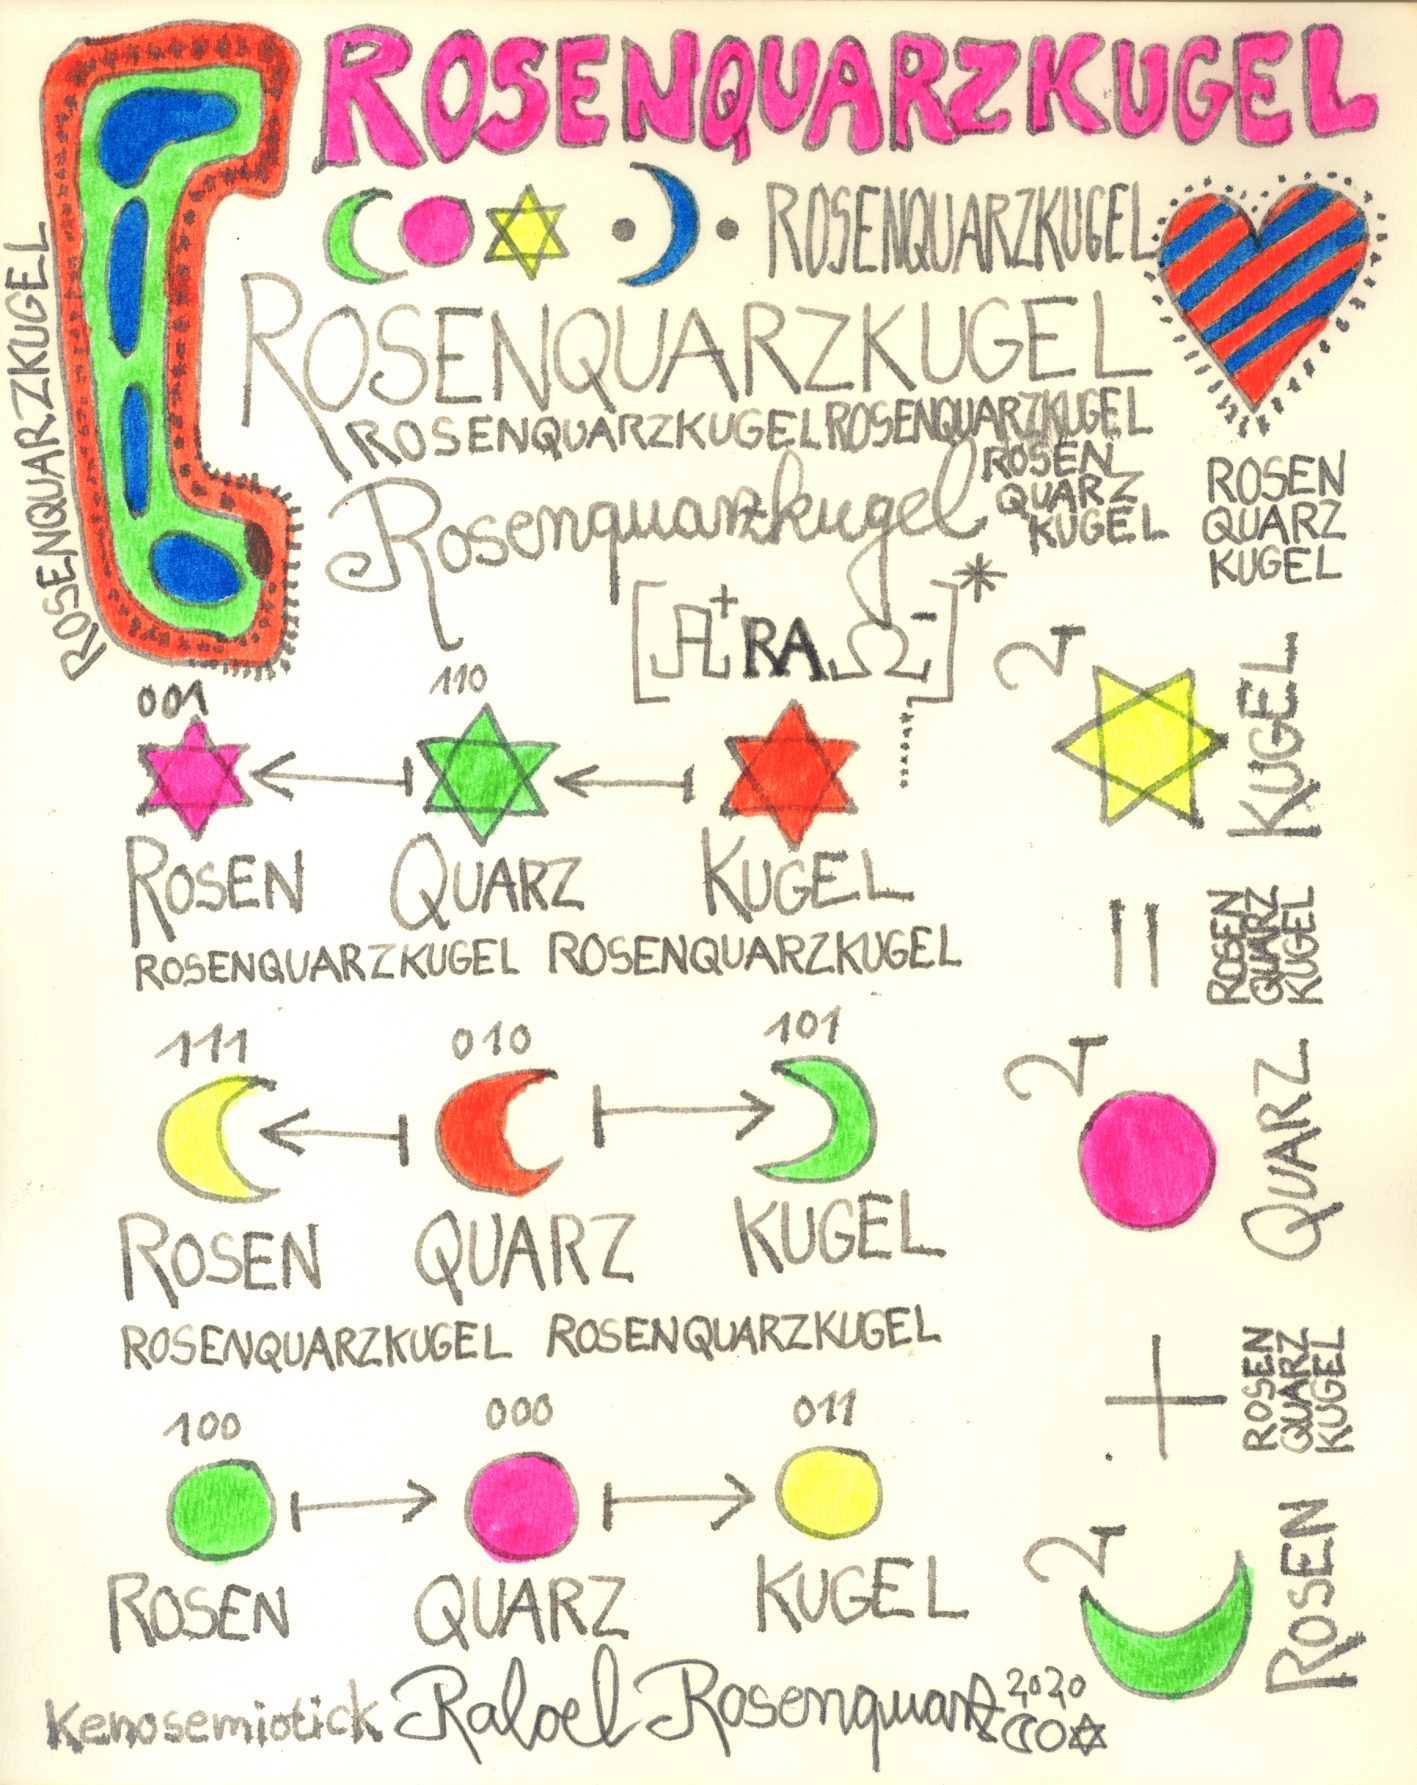 ROSENQUARZKUGEL
ROSENQUARZKUGEL
ROSENQUARZKUGEL
ROSENQUARZKUGEL
ROSENQUARZKUGEL ROSENQUARZKUGEL
Rosenquarzkugel
ROSEN
QUARZ
KUGEL
ROSEN
QUARZ
KUGEL
[A⁺RAΩ⁻]*
001 110
ROSEN QUARZ KUGEL
ROSENQUARZKUGEL ROSENQUARZKUGEL
111 010 101
ROSEN QUARZ KUGEL
ROSENQUARZKUGEL ROSENQUARZKUGEL
100 000 011
ROSEN QUARZ KUGEL
2 ROSEN
+
ROSEN
QUARZ
KUGEL
2 QUARZ
=
ROSEN
QUARZ
KUGEL
2 KUGEL
Kenosemiotick Raloel Rosenquarz 2020